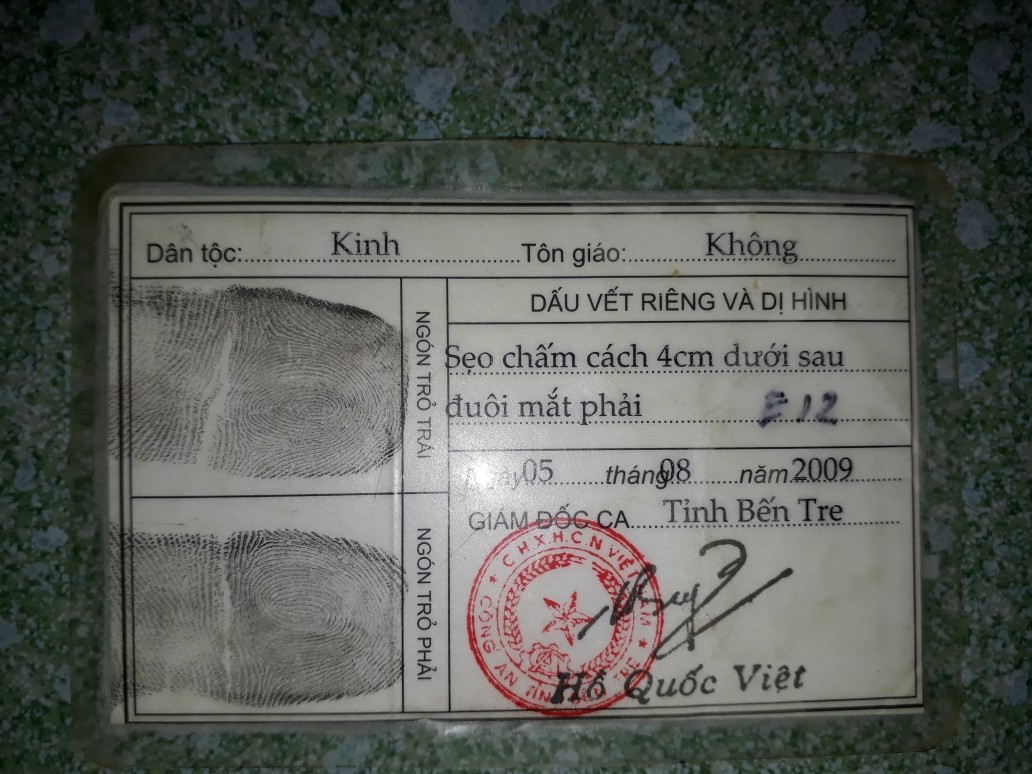 Dân tộc: Kinh Tôn giáo: Không
NGÓN TRỎ TRÁI
DẤU VẾT RIÊNG VÀ DỊ HÌNH
Sẹo chấm cách 4cm dưới sau
đuôi mắt phải E12
Ngày 05 tháng 08 năm 2009
GIÁM ĐỐC CA Tỉnh Bến Tre
NGÓN TRỎ PHẢI
C.H.X.H.C.N VIỆT NAM
CÔNG AN TỈNH BẾN TRE
Hồ Quốc Việt